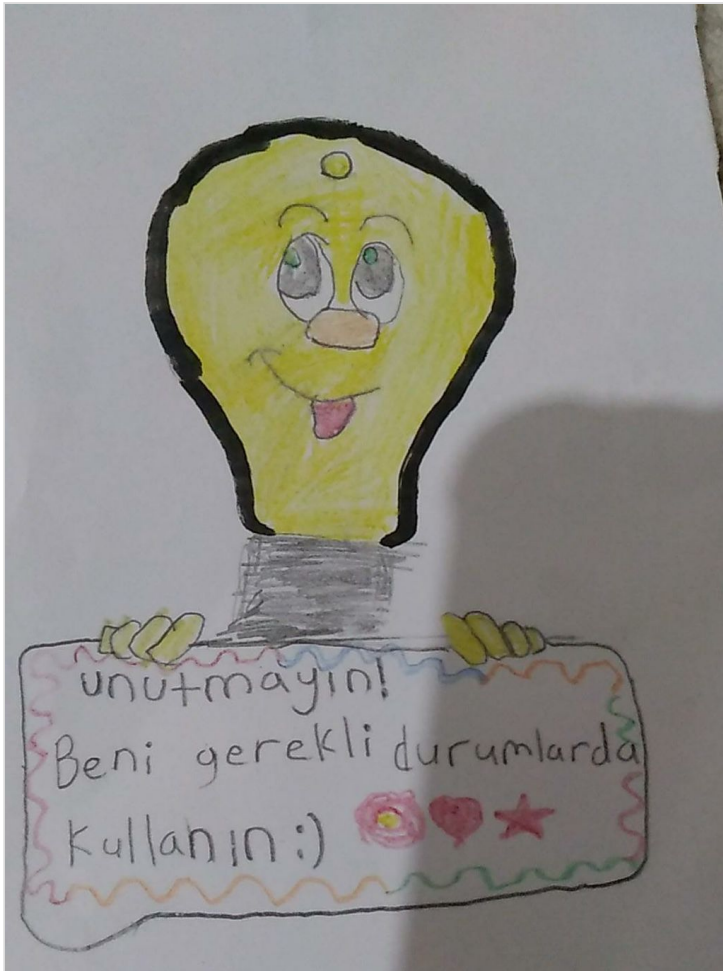 unutmayın!
Beni gerekli durumlarda
kullanın :)